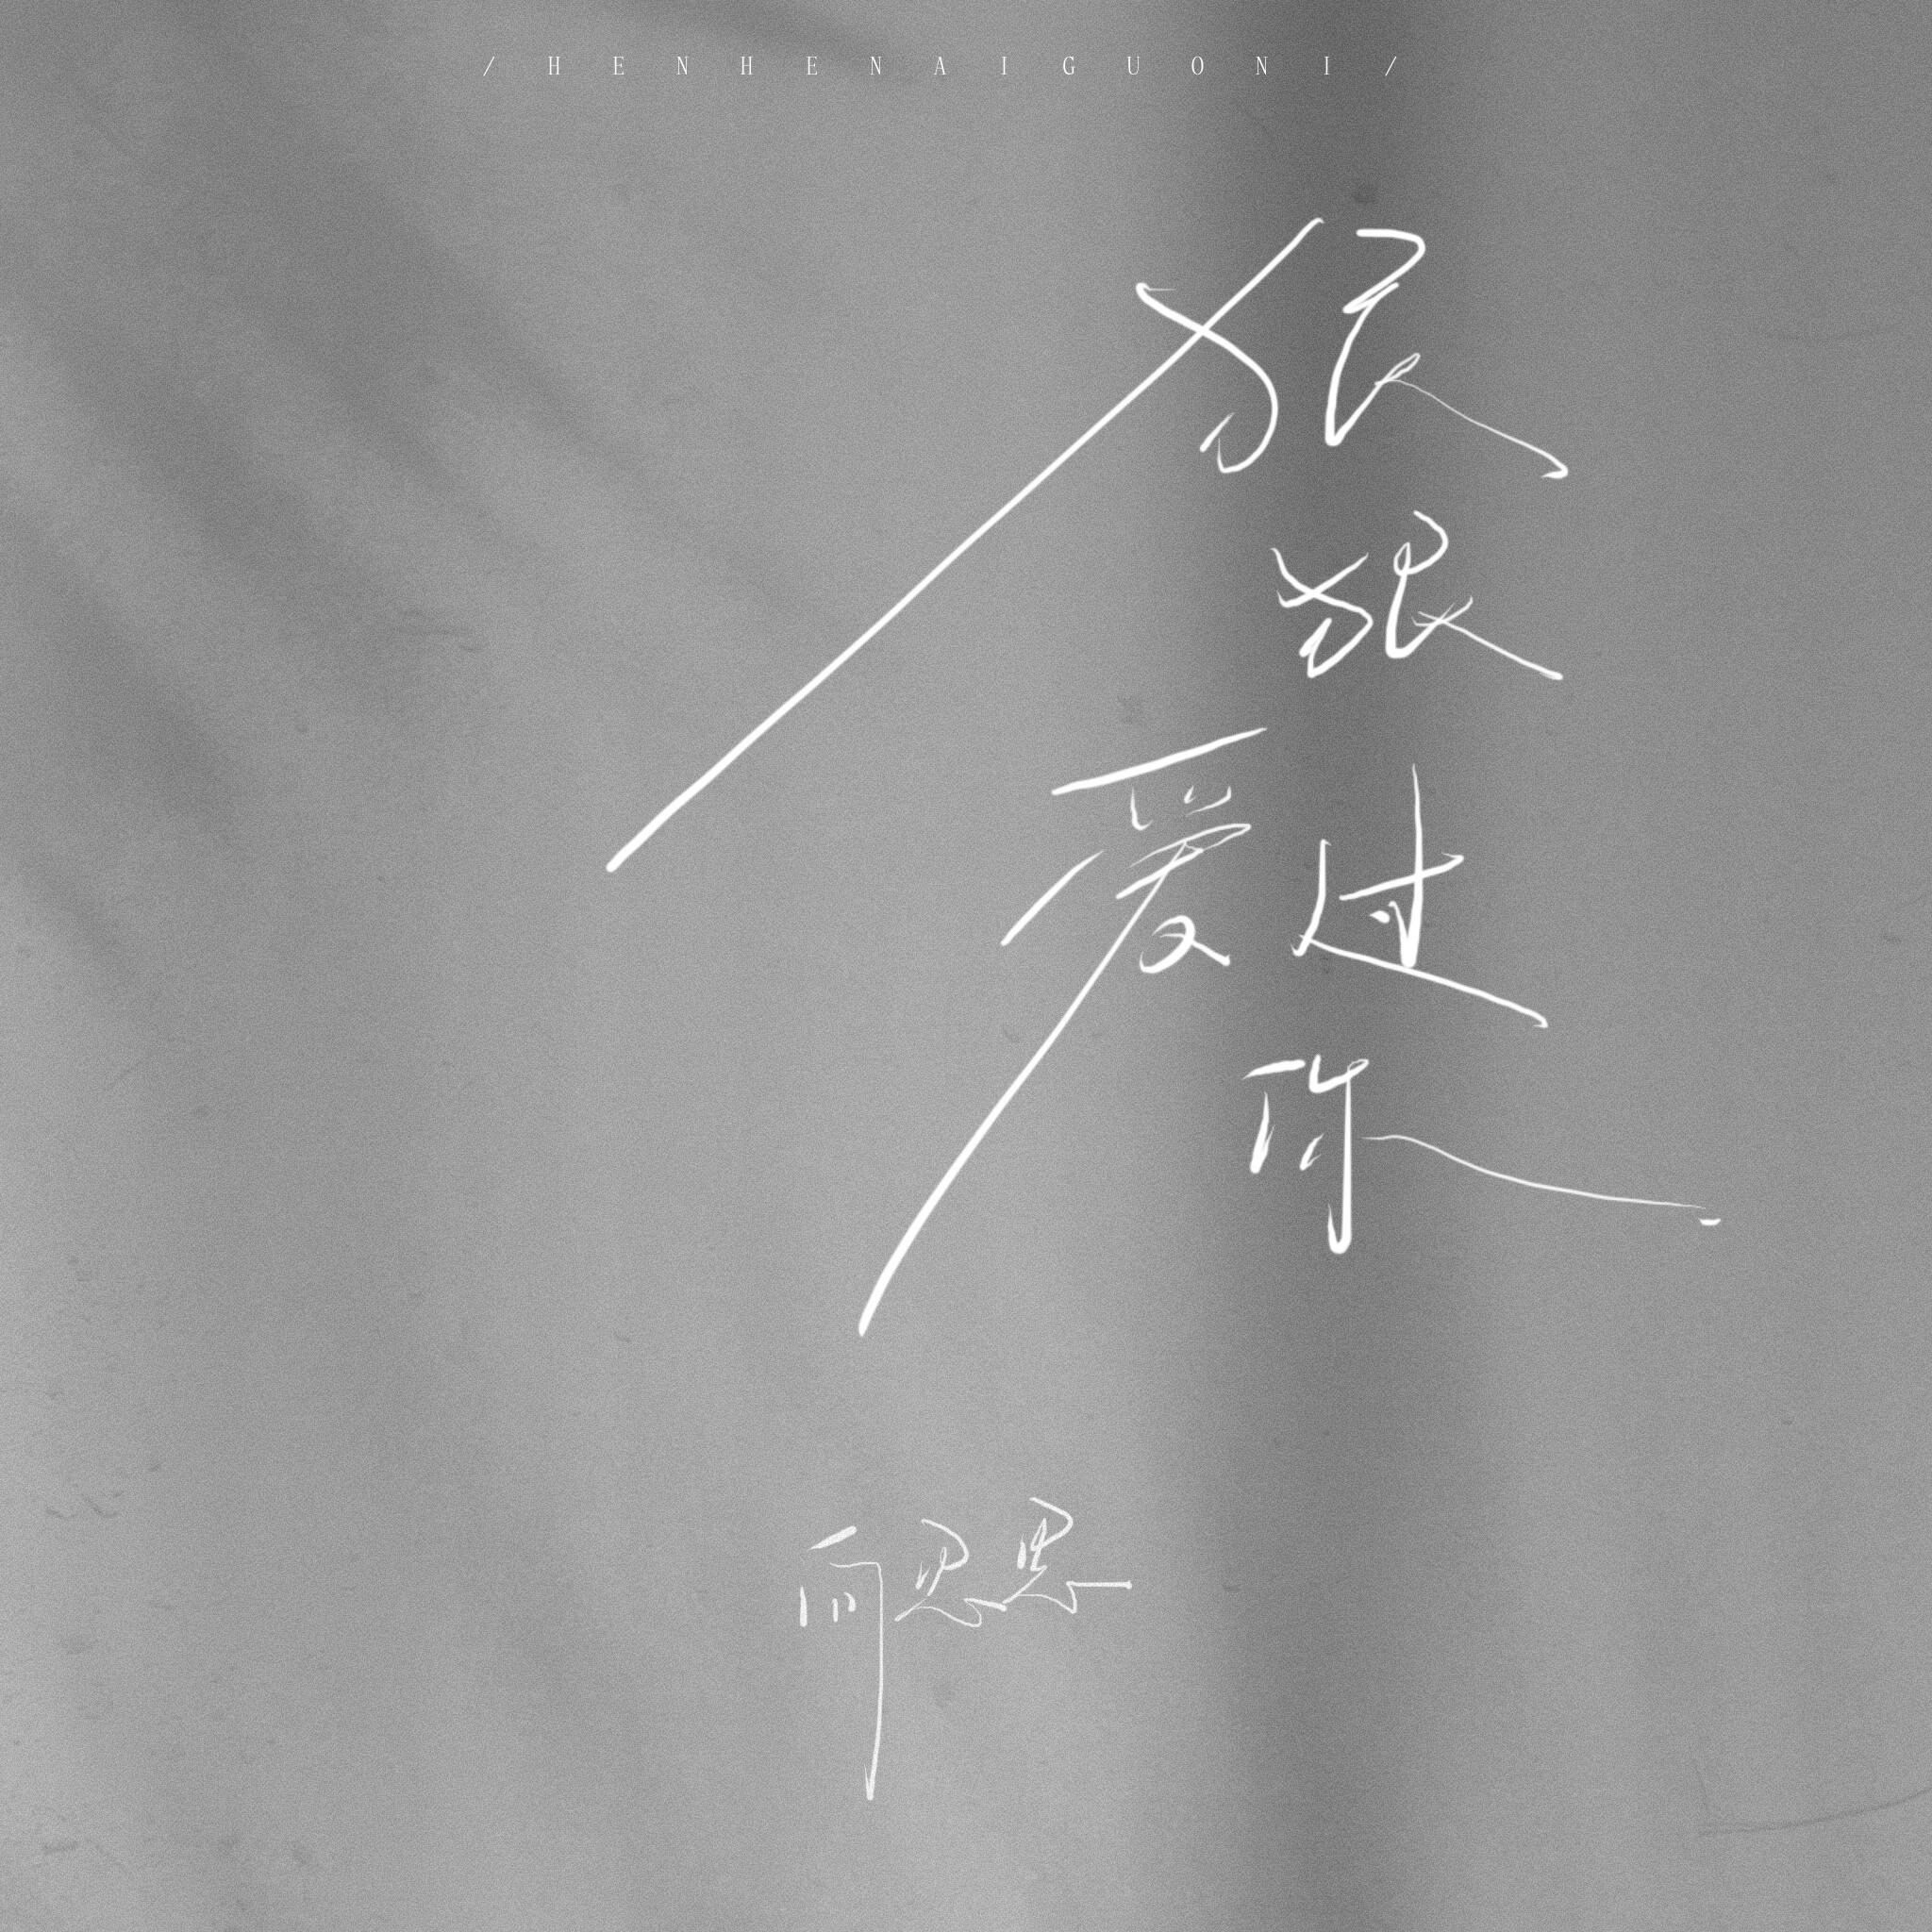 /HENHENAIGUONI/
狠
狠
爱过
你
何思思